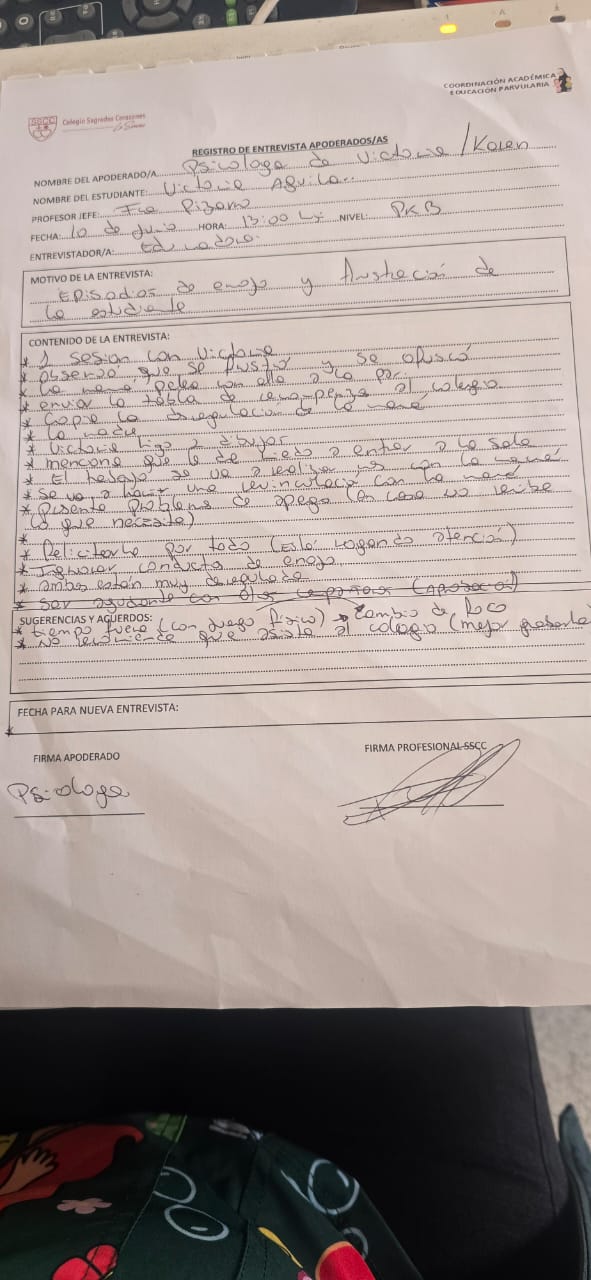 COORDINACIÓN ACADÉMICA
EDUCACIÓN PARVULARIA
SSCC Colegio Sagrados Corazones
REGISTRO DE ENTREVISTA APODERADOS/AS
NOMBRE DEL APODERADO/A: Psicologa de Victoria / Karen
NOMBRE DEL ESTUDIANTE: Victoria Aguila
PROFESOR JEFE: Fca Pizarro
FECHA: 10 de Junio HORA: 13:00 NIVEL: PKB
ENTREVISTADOR/A:
MOTIVO DE LA ENTREVISTA:
Episodios de enojo y frustración de
la estudiante
CONTENIDO DE LA ENTREVISTA:
* 1 sesión con Victoria
* Observó que se frustró y se ofuscó
* La mamá peleo con ella
* enviar la tabla de al colegio
* Copia la desregulación de la mamá
* La madre
* Victoria hizo 2 dibujos
* menciona que le da miedo a entrar a la sala
* El trabajo se va a realizar más con la mamá
* Se va a hacer una revinculación con la mamá
* Presenta problema de apego (en casa no recibe
lo que necesita)
*
* Felicitarla por todo (Está rogando atención)
* Ignorar conducta de enojo
* ambas están muy desregulada
* Ser ayudante con
SUGERENCIAS Y ACUERDOS:
* tiempo fuera (con juego físico) → Cambio de foco
* No que asista al colegio (mejor
FECHA PARA NUEVA ENTREVISTA:
*
FIRMA APODERADO
FIRMA PROFESIONAL SSCC
Psicologa